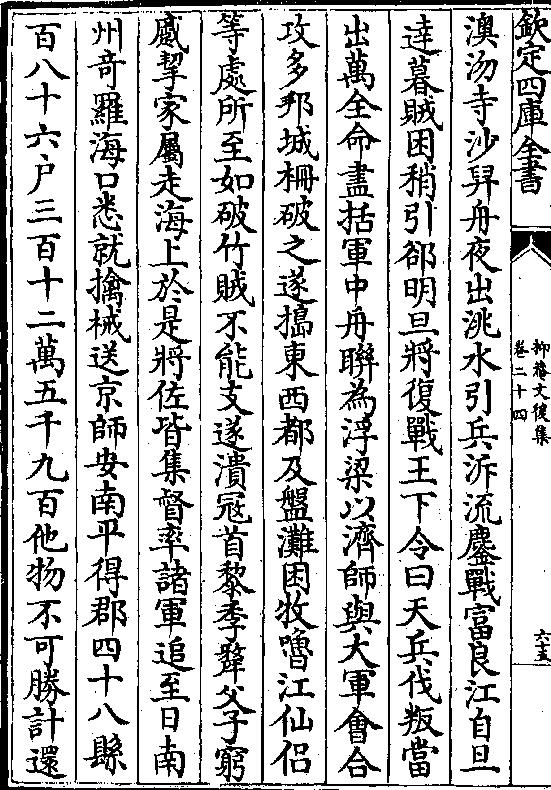 欽定四庫全書
抑菴文後集
卷二十四
六十五
澳沕寺沙舁舟夜出洮水引兵泝流鏖戰富良江自旦
逹暮賊困稍引郤明旦將復戰王下令曰天兵伐叛當
出萬全命盡括軍中舟聯為浮梁以濟師與大軍會合
攻多邦城柵破之遂搗東西都及盤灘困牧嚕江仙侣
等處所至如破竹賊不能支遂潰冦首黎季犛父子窮
蹙挈家屬走海上於是將佐皆集督率諸軍追至日南
州竒羅海口悉就擒械送京師安南平得郡四十八縣
百八十六户三百十二萬五千九百他物不可勝計還